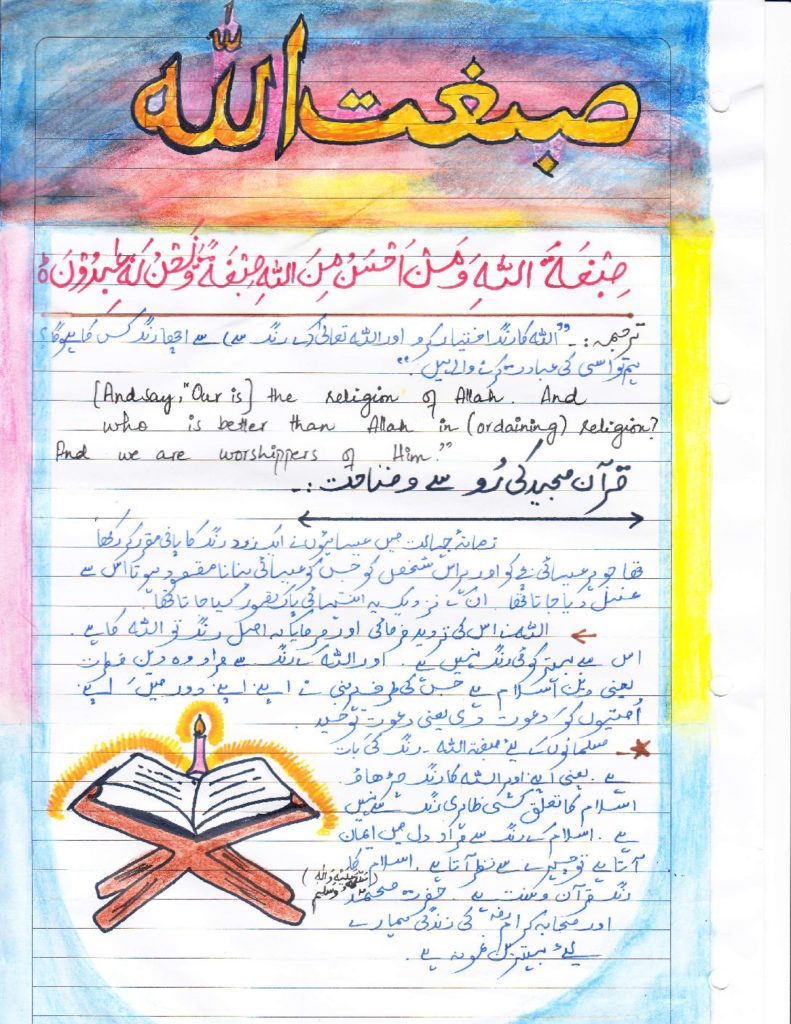 صبغت الله
صِبْغَةَ اللّٰهِ وَمَنْ اَحْسَنُ مِنَ اللّٰهِ صِبْغَةً وَّنَحْنُ لَهٗ عٰبِدُوْنَ ٥
ترجمہ:۔ "اللہ کا رنگ اختیار کرو اور اللہ تعالیٰ (کے رنگ سے) سے اچھا رنگ کس کا ہوگا؟
ہم تو اسی کی عبادت کرنے والے ہیں۔"
[And say, "Our is] the religion of Allah. And
who is better than Allah in (ordaining) religion?
And we are worshippers of Him."
قرآن مجید کی رُو سے وضاحت :۔
زمانۂ جہالت میں عیسائیوں نے ایک زرد رنگ کا پانی مقرر کر رکھا
تھا جو ہر عیسائی بچے کو اور ہر اس شخص کو جس کو عیسائی بنانا مقصود ہوتا اس سے
غسل دیا جاتا تھا۔ ان کے نزدیک یہ انتہائی پاک تصور کیا جاتا تھا۔
اللہ نے اس کی تردید فرمائی اور فرمایا کہ اصل رنگ تو اللہ کا ہے۔
اس سے بہتر کوئی رنگ نہیں ہے۔ اور اللہ کے رنگ سے مراد وہ دین فطرت
یعنی دین اسلام ہے جس کی طرف ہر نبی نے اپنے اپنے دور میں اپنے
اُمتیوں کو دعوت دی یعنی دعوت توحید۔
مسلمانوں کے لئے صبغۃ اللہ۔ رنگ کی بات
ہے۔ یعنی اپنے اوپر اللہ کا رنگ چڑھاؤ۔
اسلام کا تعلق کسی ظاہری رنگ سے نہیں
ہے۔ اسلام کے رنگ سے مراد دل میں ایمان
آتا ہے تو چہرے سے نظر آتا ہے۔ اسلام کا
رنگ قرآن و سنت ہے۔ حضرت محمد (صلی اللہ علیہ وآلہ وسلم)
اور صحابہ کرامؓ کی زندگی ہمارے
لئے بہترین نمونہ ہے۔